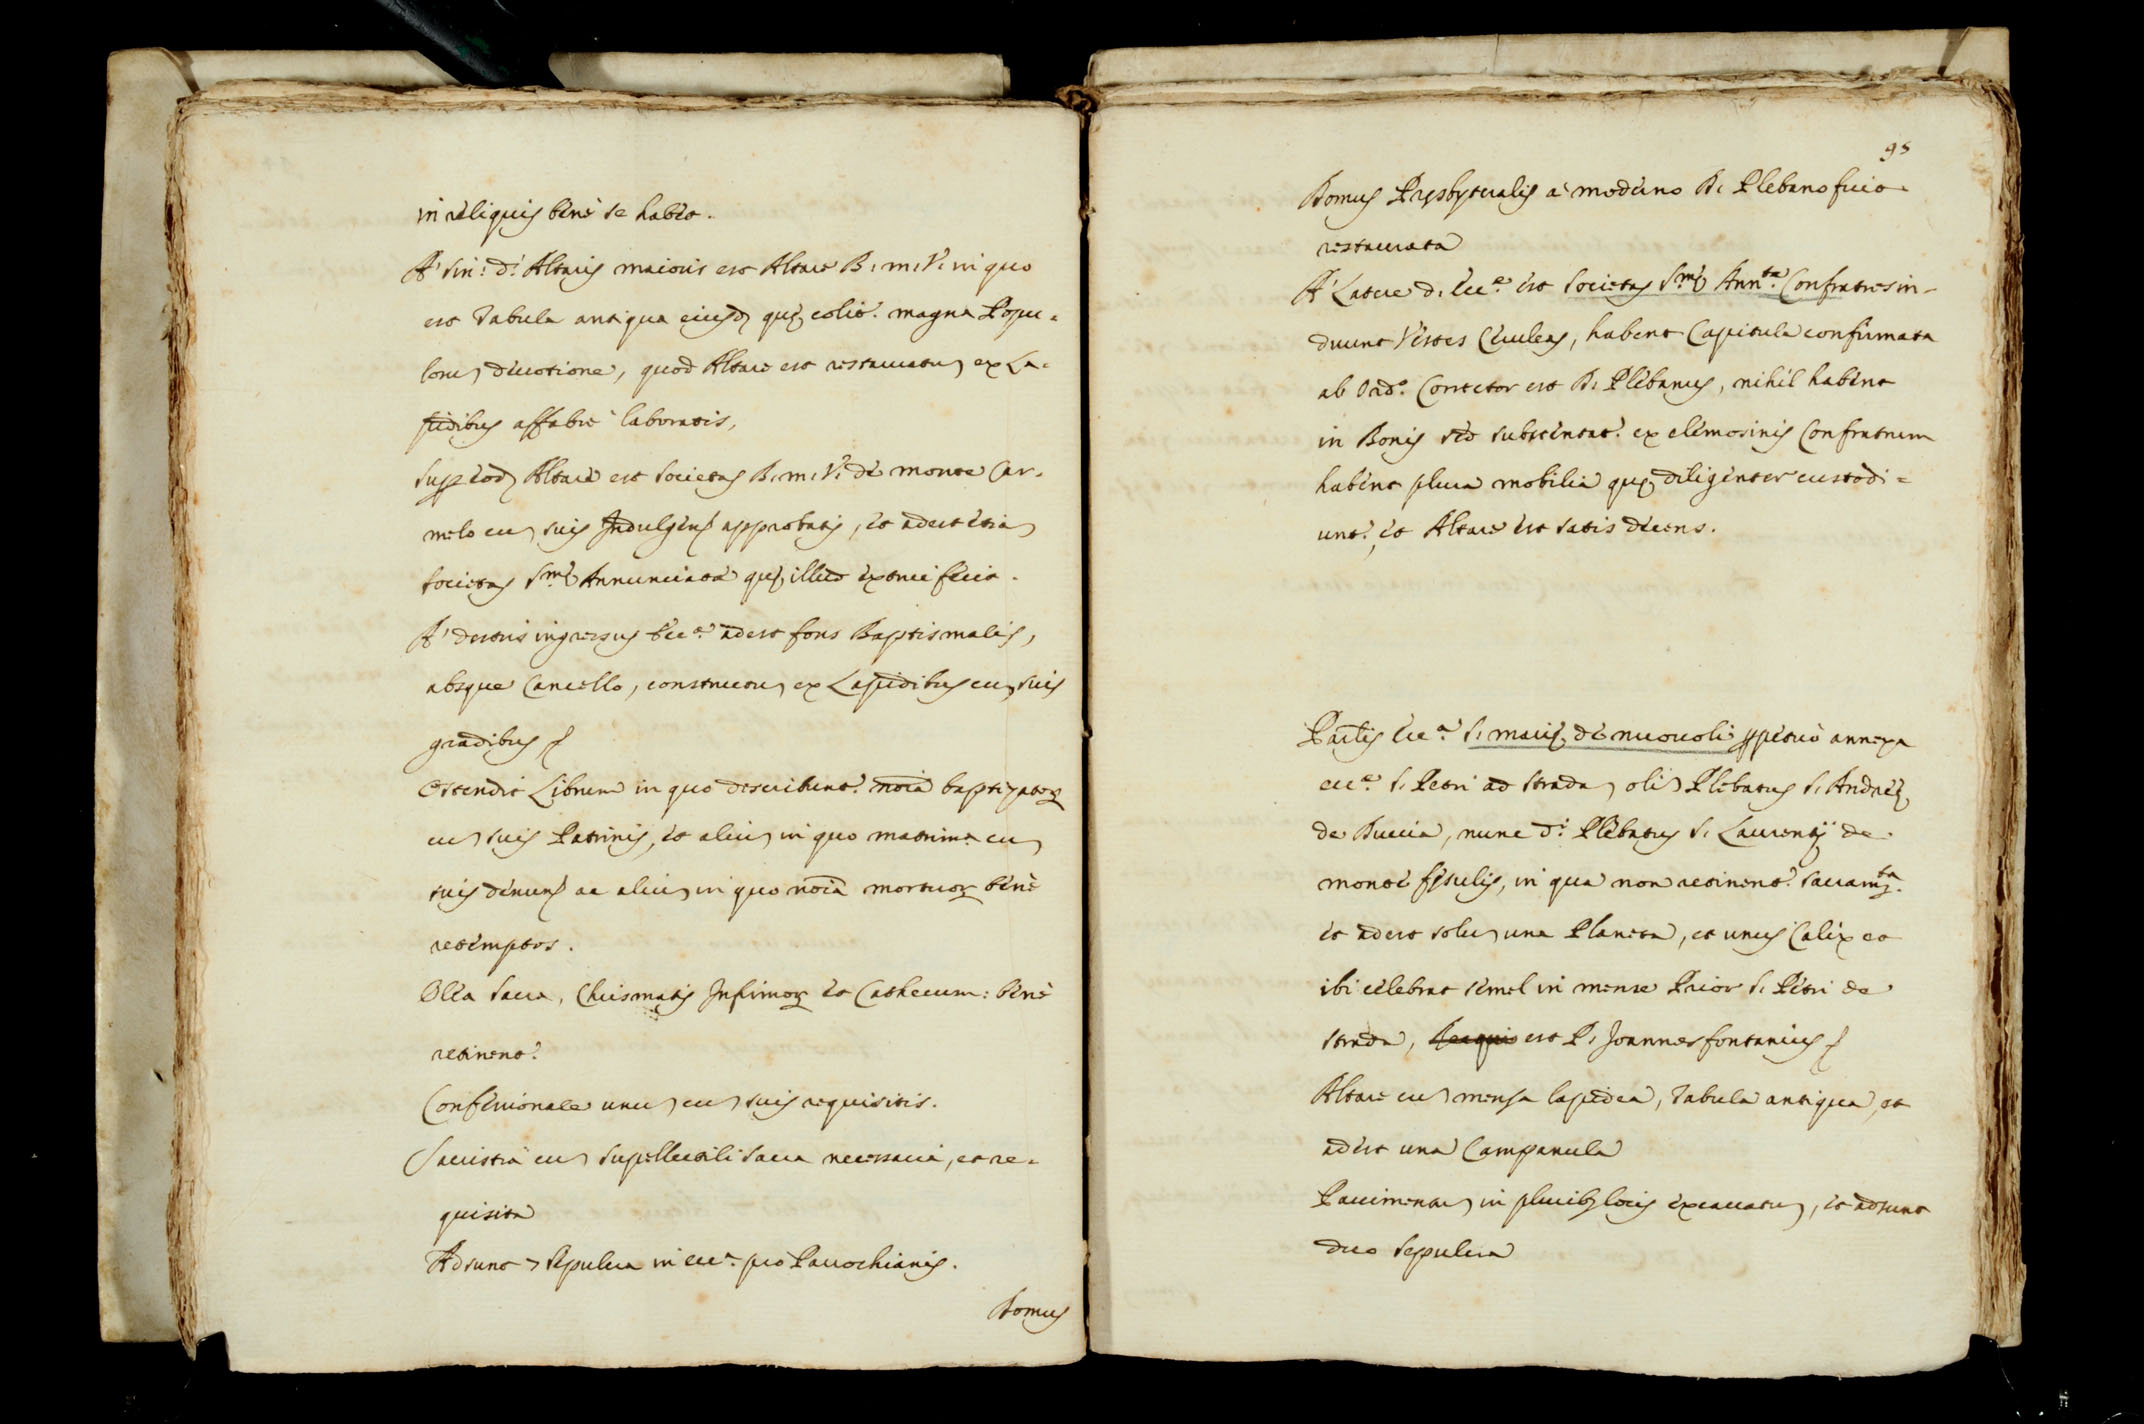 in reliquis benè se habet.
A' sin: d: Altaris maioris est Altare B. m. V. in quo
est Tabula antiqua eiusd. quę colit. magna Popu=
lorum deuotione, quod Altare est restauratum ex La=
pidibus affabrè laboratis,
Supr eod. Altare est Societas B. m. V. de monte Car=
melo cum suis Indulgens approbatis, et adest etiam
Societas Smę Annunciatę quę illud extrui fecit.
A' dextris ingressus Eccę adest fons Baptismalis,
absque Cancello, constructum ex Lapidibus cum suis
gradibus
Ostendit Librum in quo describunt. noīa baptizator
cum suis Patrinis, et alium in quo matrim.a cum
suis denuns ac alium in quo noīa mortuor benè
retemptos.
Olea Sacra, Chrismatis Infirmor et Cathecum: benè
retinent.
Confessionale unum cum suis requisitis.
Sacristia cum supellectili sacra necessaria, et re=
quisita
Adsunt 7 sepulcra in ecc.a pro Parrochianis.
Domus
95
Domus Presbyteralis à moderno D. Plebano fuit
restaurata
A' Latere d. Ecc.e est Societas Smę Ann.tę Confratres in=
duunt Vestes Ceruleas, habent Capitula confirmata
ab Ord.o Corrector est D. Plebanus, nihil habent
in Bonis sed substentat. ex elemosinis Confratrum
habent plura mobilia quę diligenter custodi=
unt., et Altare est satis decens.
Parlis Ecc.a S. marię de nuouoli ppetuò annexa
ecc.e S. Petri ad stradam olim Plebatus S. Andreę
de Buccia, nunc d: Plebatus S. Laurentij de
monte fesulis, in qua non retinent. Sacram.ta
et adest solum una Planeta, et unus Calix et
ibi celebrat semel in mense Prior S. Petri de
strada, est P. Joannes fontanius
Altare cum mensa lapidea, Tabula antiqua, et
adest una Campanula
Pauimentum in pluribus locis excauatum, et adsunt
duo sepulcra